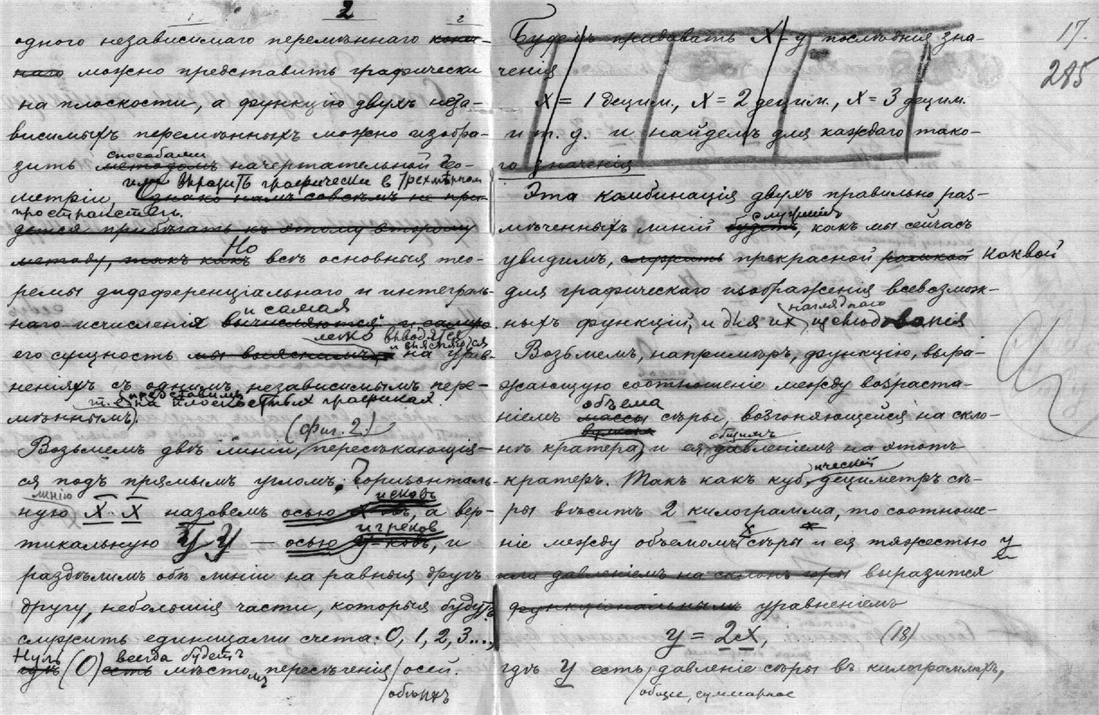 2
одного независимаго перемѣннаго
можно представить графически
на плоскости, а функцію двухъ неза-
висимыхъ перемѣнныхъ можно изобра-
способами
зить методомъ начертательной гео-
или выразить графически в трехмѣрном
метріи, Однако намъ совсѣмъ не при-
пространствѣ.
дется прибѣгать къ этому второму
Но
методу, такъ какъ всѣ основныя тео-
ремы дифференціальнаго и интеграль-
и самая
наго исчисленія вычисляются и самую
легко выводятся
и выясняются
его сущность мы выяснимъ на урав-
неніяхъ съ однимъ независимымъ пере-
т.е. представимъ на плоскостныхъ графикахъ.
мѣннымъ).
(фиг. 2.)
Возьмемъ двѣ линіи, пересѣкающія-
ся подъ прямымъ угломъ. Горизонталь-
линію
иксовъ
ную X X назовемъ осью, а вер-
игреков
тикальную У У — осью, и
раздѣлимъ обѣ линіи на равныя другъ
другу, небольшія части, которыя будутъ
служить единицами счета: 0, 1, 2, 3...,
Нуль всегда будетъ
(0) есть мѣстомъ пересѣченія осей.
обѣихъ
17.
285
Будемъ придавать X-у послѣднія зна-
ченія
X = 1 децим., X = 2 децим., X = 3 децим.
и т. д. и найдемъ для каждаго тако-
го значенія
Эта комбинація двухъ правильно раз-
служитъ
мѣченныхъ линій будетъ, какъ мы сейчасъ
увидимъ, служить прекрасной канвой
для графическаго изображенія всевозмож-
нагляднаго
ныхъ функцій, и для их изслѣдованія
Возьмемъ, напримѣръ, функцію, выра-
жающую соотношеніе между возраста-
объема
ніемъ массы сѣры, возгоняющейся на скло-
общимъ
нѣ кратера, и ея давленіемъ на этотъ
ическій
кратеръ. Такъ какъ куб. дециметръ сѣ-
ры вѣситъ 2 килограмма, то соотноше-
x
ніе между объемомъ сѣры и ея тяжестью y
или давленіемъ на склонъ горы выразится
функціональнымъ уравненіемъ
y = 2x, (18)
гдѣ У есть давленіе сѣры въ килограммахъ,
общее, суммарное